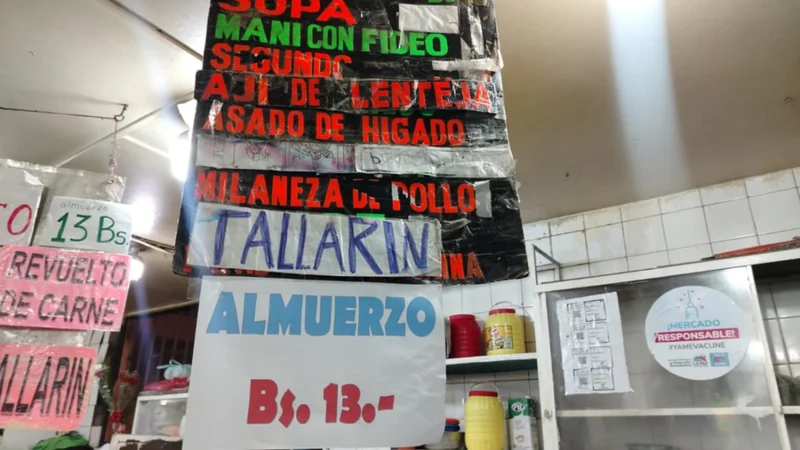 SOPA
MANI CON FIDEO
SEGUNDO
AJI DE LENTEJA
ASADO DE HIGADO
MILANEZA DE POLLO
TALLARIN
INA
ALMUERZO
Bs. 13.-
TO
almuerzo
13 Bs.
REVUELTO
DE CARNE
ALLARIN
¡MERCADO
RESPONSABLE!
#YAMEVACUNE